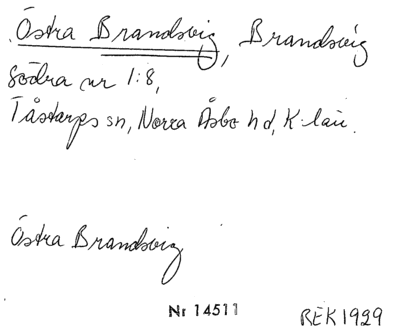 Östra Brandsvig, Brandsvig
Södra nr 1:8,
Tåstarps sn, Norra Åsbo hd, K-län.
Östra Brandsvig
Nr 14511
REK 1929